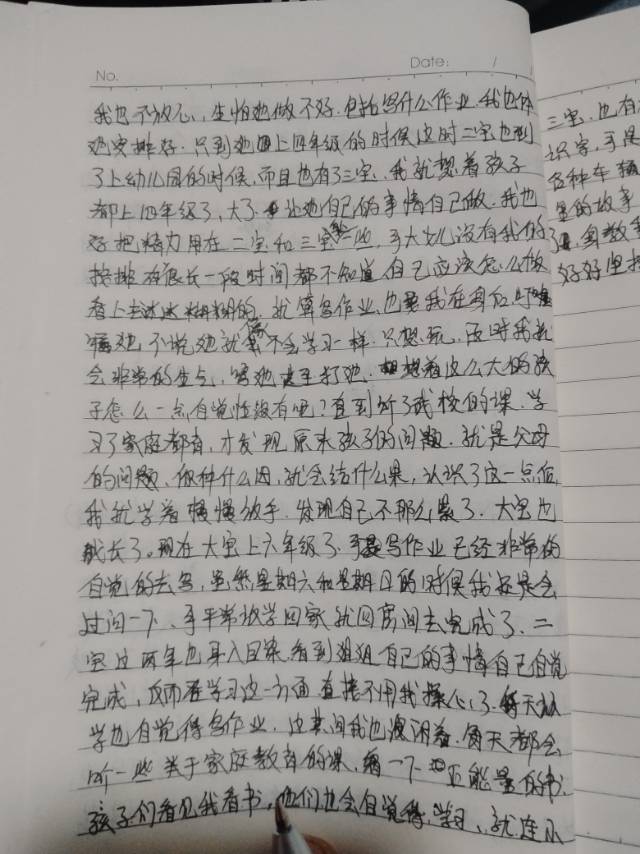 No.
Date: /
我也不放心，生怕她做不好.包括写什么作业.我也给
她安排好.只到她上四年级的时候这时二宝也到
了上幼儿园的时候.而且也有了三宝.我就想着孩子
都上四年级了,大了.让她自己的事情自己做.我也
好把精力用在二宝和三宝些.大女儿没有我的
按排有很长一段时间都不知道自己应该怎么做
看上去迷迷糊糊的.就算写作业也要我在身
她.不说她就像不会学习一样.只想玩,这时我就
会非常的生气,骂她甚至打她.想着这么大的孩
子怎么一点自觉性没有呢?直到听了我校的课.学
习了家庭教育,才发现原来孩子的问题.就是父母
的问题、你种什么因,就会结什么果,认识了这一点后
我就学着慢慢放手.发现自己不那么累了.大宝也
成长了.现在大宝上六年级了.写作业已经非常的
自觉的去写,虽然星期六和星期日的时候我还是会
过问一下、平常放学回家就回房间去完成了.二
宝这两年也耳入目染.看到姐姐自己的事情自己自觉
完成,反而在学习这一方面直接不用我操心了.每天放
学也自觉得写作业,这其间我也没闲着.每天都会
听一些关于家庭教育的课,看一下正能量的书.
孩子们看见我看书,他们也会自觉得学习、就连
三宝.也有
识字,
各种车辆
里的故事
好好坚持